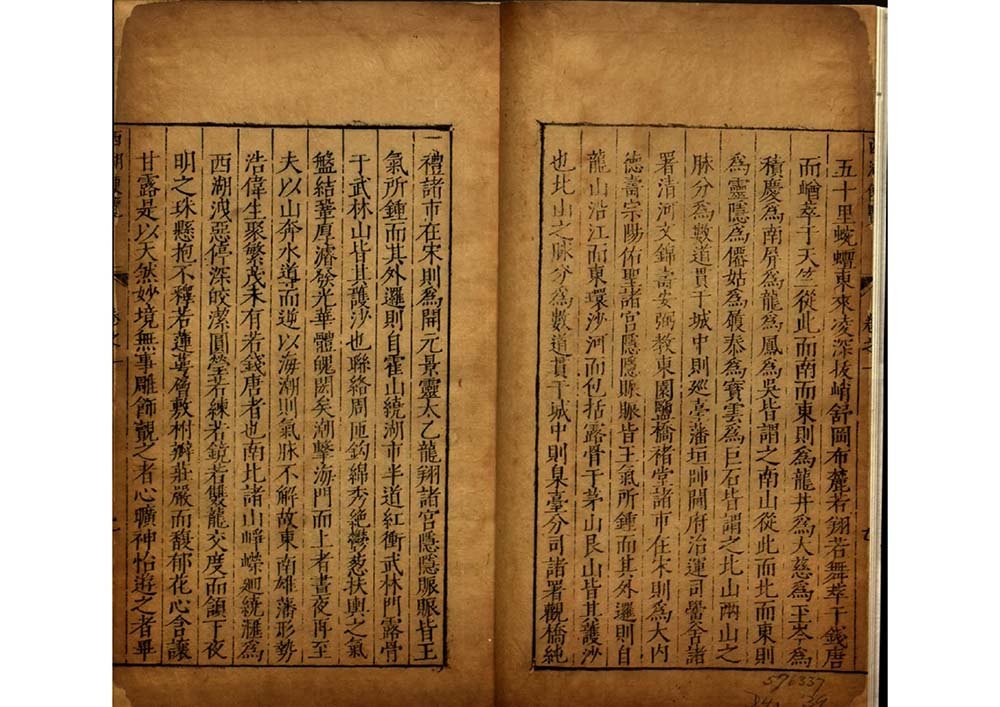 五十里蜿蟺東來凌深拔峭舒岡布麓若翔若舞萃于錢唐
而嶒萃于天竺從此而南而東則爲龍井爲大慈爲玉岑爲
積慶爲南屏爲龍爲鳳爲吳皆謂之南山從此而北而東則
爲靈隱爲僊姑爲履泰爲寶雲爲巨石皆謂之北山兩山之
脉分爲數道貫于城中則廵臺藩垣帥閫府治運司黌舍諸
署清河文錦壽安弼教東園鹽橋褚堂諸市在宋則爲大内
德壽宗陽佑聖諸宮隱隱賑賑皆王氣所鍾而其外邏則自
龍山沿江而東環沙河而包括露骨于茅山艮山皆其護沙
也北山之脉分爲數道貫于城中則臬臺分司諸署觀橋純
禮諸市在宋則爲開元景靈太乙龍翔諸宮隱隱賑賑皆王
氣所鍾而其外邏則自霍山繞湖市半道紅衝武林門露骨
于武林山皆其護沙也聯絡周匝鈎綿秀絶鬱葱扶輿之氣
盤結鞏厚濬發光華體魄閎矣潮擊海門而上者晝夜再至
夫以山奔水導而逆以海潮則氣脉不解故東南雄藩形勢
浩偉生聚繁茂未有若錢唐者也南北諸山崢嶸廻繞滙爲
西湖洩惡停深皎潔圓瑩若練若鏡若雙龍交度而頷下夜
明之珠懸抱不釋若蓮蕚層敷柎瓣莊嚴而馥郁花心含讓
甘露是以天然妙境無事雕飾覿之者心曠神怡遊之者畢
西湖遊覽
卷之一
五九六三三七